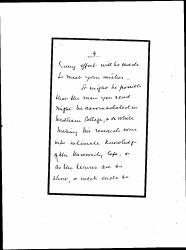 4
Every effort will be made
to meet your wishes.
It might be possible
that the man you send
might be accommodated in
Wadham College, & so while
making his research come
into intimate knowledge
of the University life, or
as the terms are so
short, a week ends to